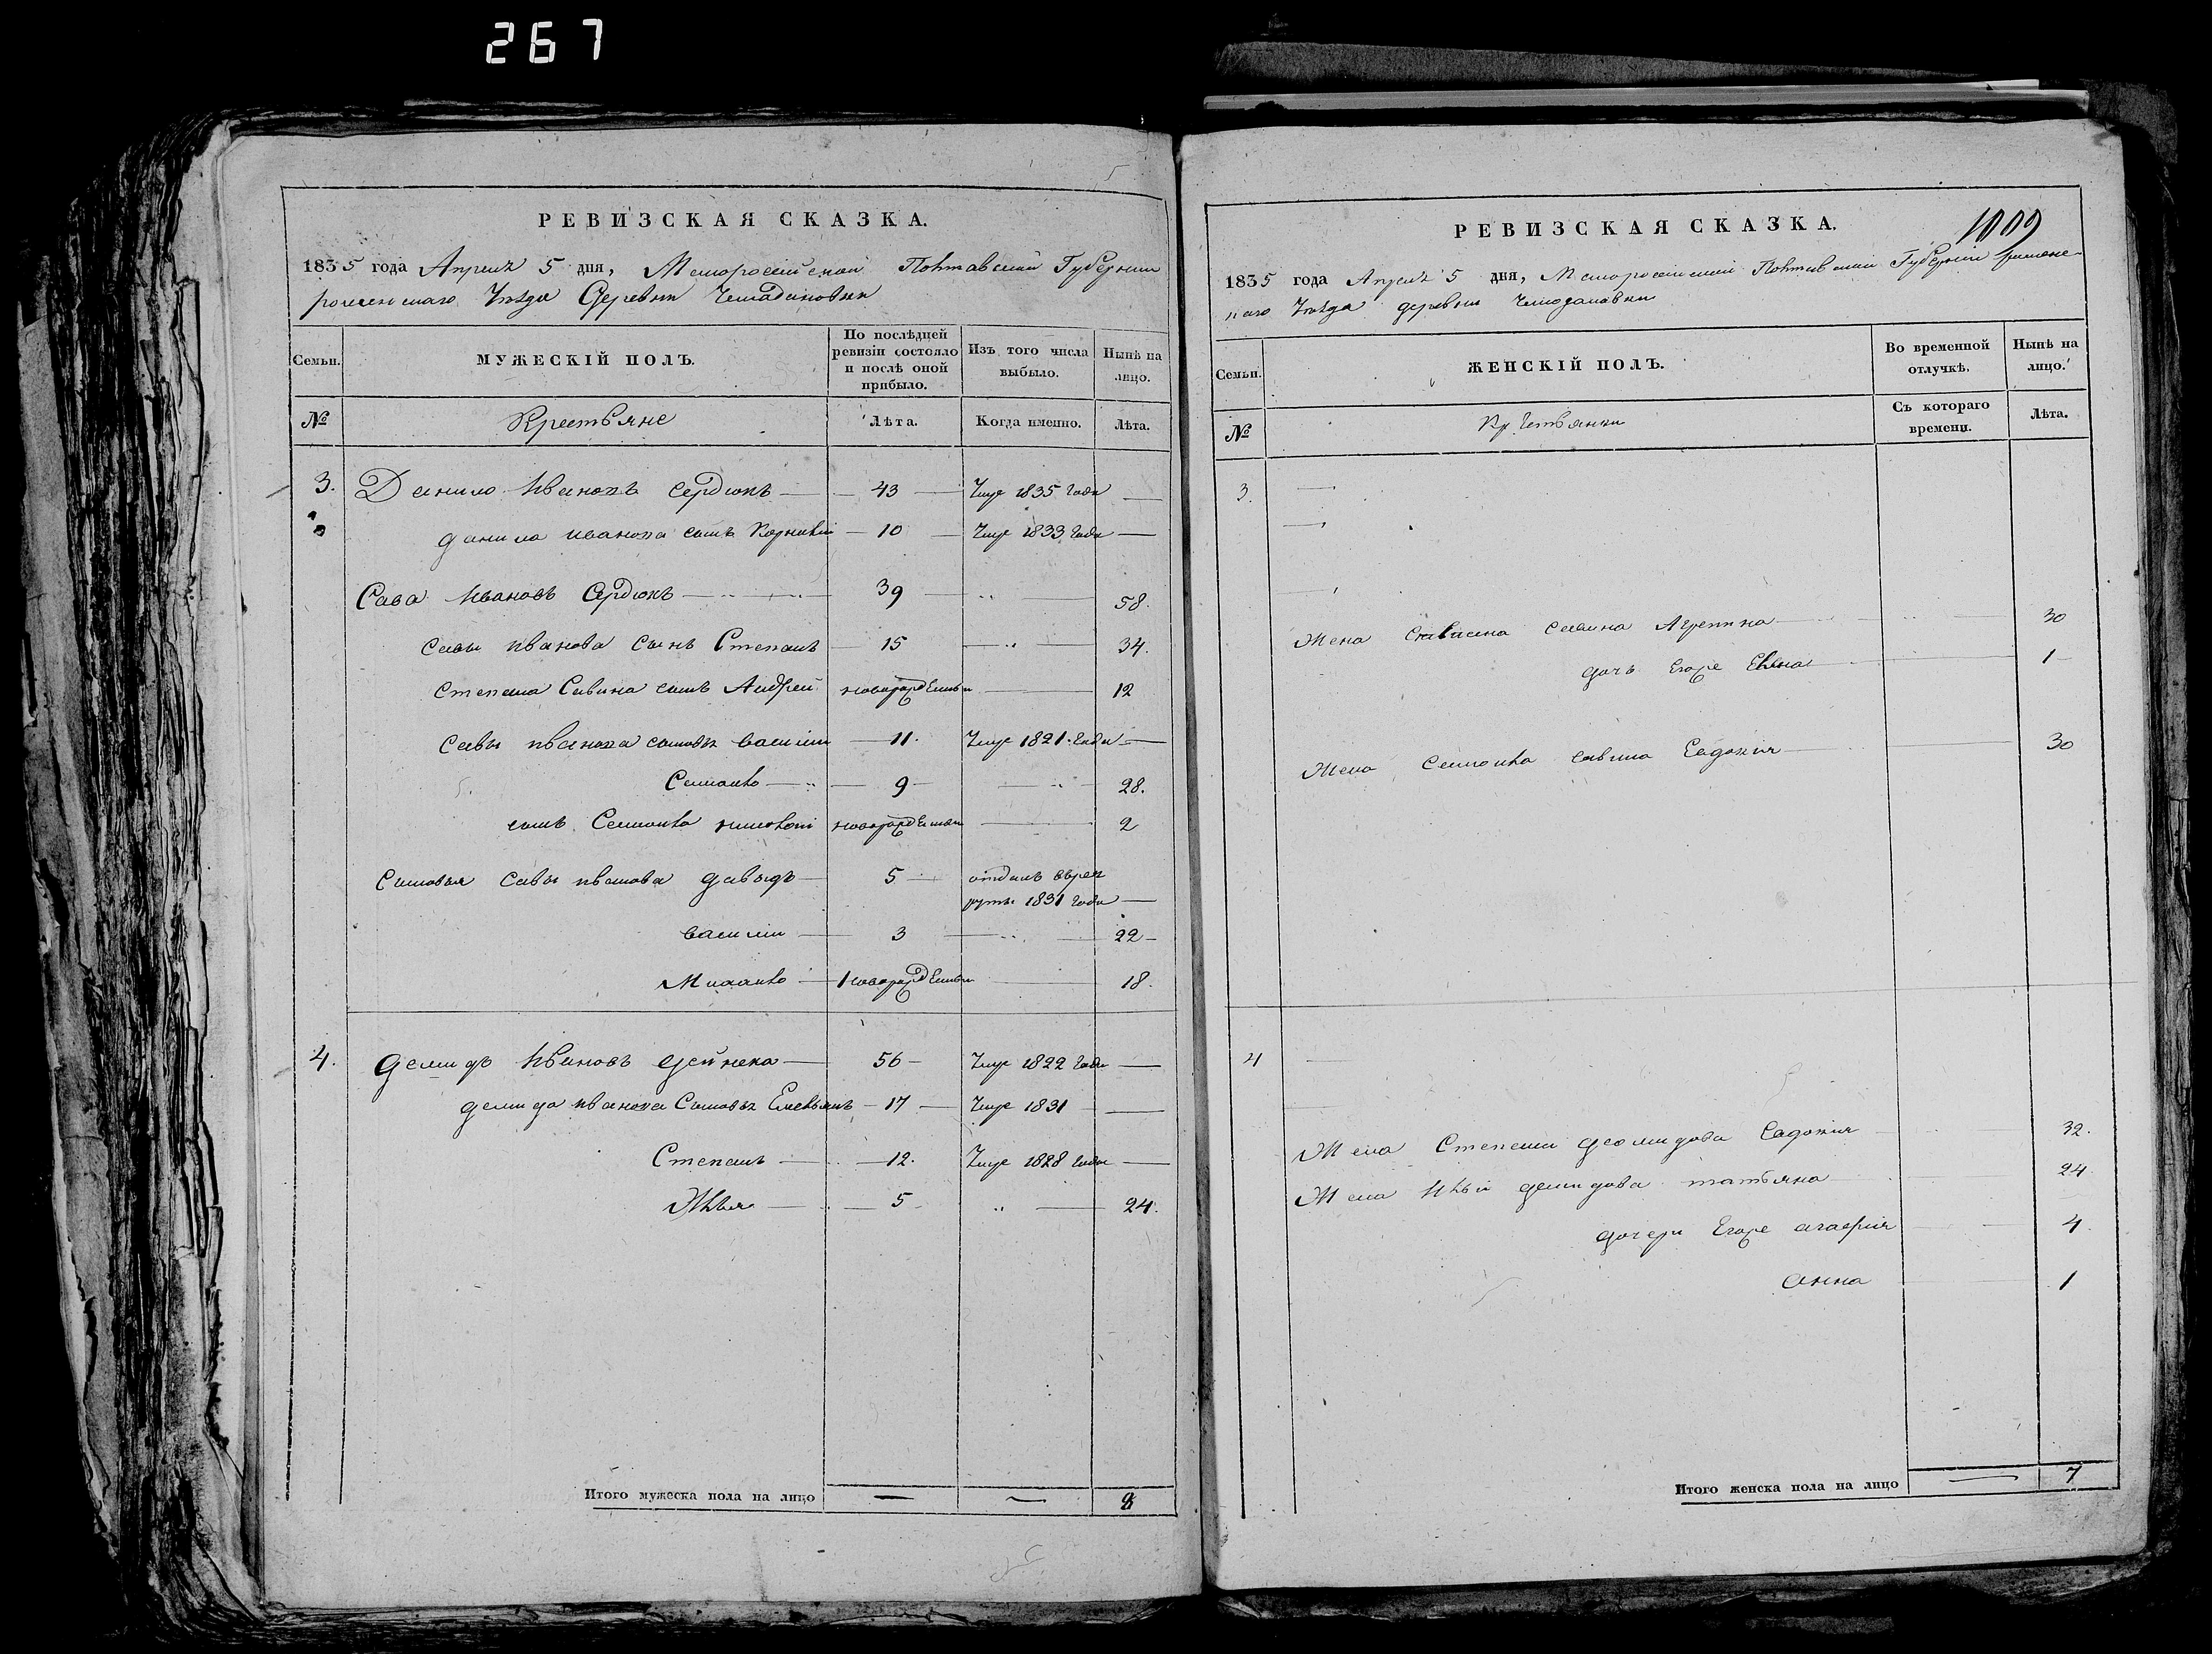 267
РЕВИЗСКАЯ СКАЗКА.
1835 года Апреля 5 дня, Малоросійской Полтавской Губерніи
роменскаго Уезда Деревни Чемадановки
Семьи. МУЖЕСКІЙ ПОЛЪ. По послѣдней ревизіи состояло и послѣ оной прибыло. Изъ того числа выбыло. Нынѣ на лицо.
№ Крестьяне Лѣта. Когда именно. Лѣта.
3. Данило Ивановъ Сердюкъ — 43 — Умре 1835 года —
данила иванова сынъ Корнилій — 10 — Умре 1833 года —
Сава Ивановъ Сердюкъ — 39 — 58.
савы иванова сынъ Степанъ — 15 — 34.
Степана Савина сынъ Андрей новорожденъ — 12
савы иванова сыновья василій — 11. Умре 1821. года —
Семионъ — 9 — 28.
сынъ Семиона новорожденъ — 2
Сыновья савы иванова давыдъ — 5 отданъ врек
руты 1831 года —
василій — 3 — 22 —
новорожденъ — 18.
4. демидъ Ивановъ дейнека — 56 — Умре 1822 года —
демида иванова Сыновья Емельянъ — 17 — Умре 1831 —
Степанъ — 12. Умре 1828 года —
Илья — 5 — 24.
Итого мужеска пола на лицо — — 8
РЕВИЗСКАЯ СКАЗКА.
1009
1835 года Апреля 5 дня, Малоросійской Полтавской Губерніи роменс
каго Уезда деревни Чемодановки
Семьи. ЖЕНСКІЙ ПОЛЪ. Во временной отлучкѣ. Нынѣ на лицо.
№ Крестьянки Съ котораго времени. Лѣта.
3. —
—
Жена савина Агрепина — 30
дочь Егоже Елена — 1
Жена Семиона савина Евдокия — 30
4 —
Жена Степана демидова Евдокия 32.
Жена Ильи демидова татьяна — 24
дочери Егоже агафия 4.
анна 1
Итого женска пола на лицо — 7